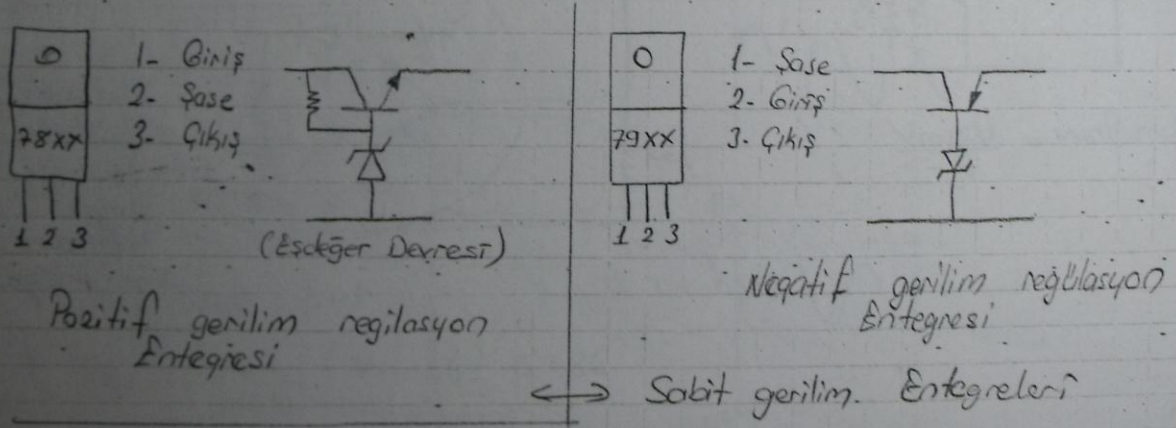 1- Giriş
2- Şase
3- Çıkış
78XX
1 2 3
(Eşdeğer Devresi)
Pozitif gerilim regilasyon
Entegresi
1- Şase
2- Giriş
3- Çıkış
79XX
1 2 3
Negatif gerilim regülasyon
Entegresi
Sabit gerilim. Entegreleri